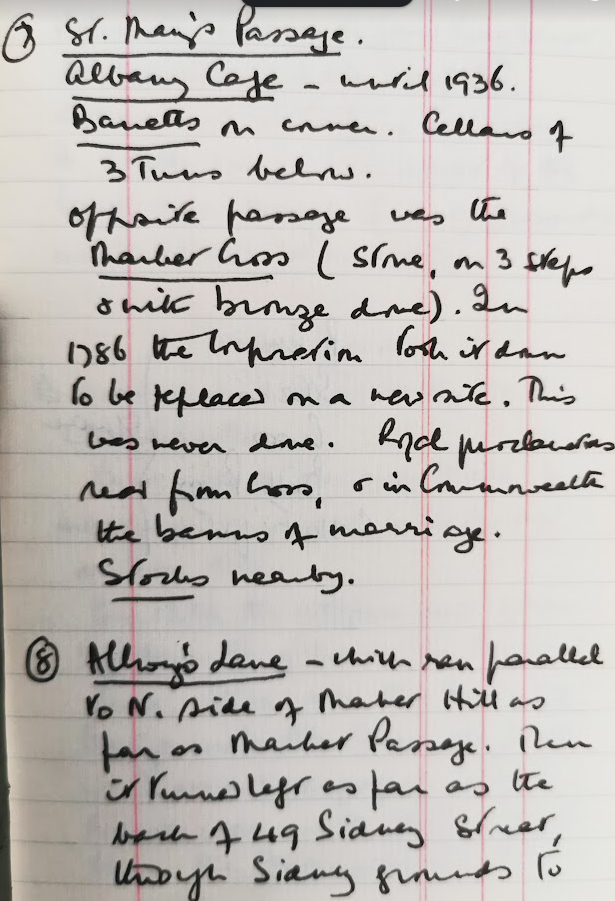 ⑦ St. Mary's Passage.
Albany Cafe - until 1936.
Barretts on corner. Cellars of
3 Tuns below.
Opposite passage was the
Market Cross (stone, on 3 steps
& with bronze dome). In
1786 the Corporation took it down
to be replaced on a new site. This
was never done. Royal proclamations
read from Cross, & in Commonwealth
the banns of marriage.
Stocks nearby.
⑧ Allwy's Lane - which ran parallel
to N. side of Market Hill as
far as Market Passage. Then
it turned left as far as the
back of 49 Sidney Street,
through Sidney grounds to